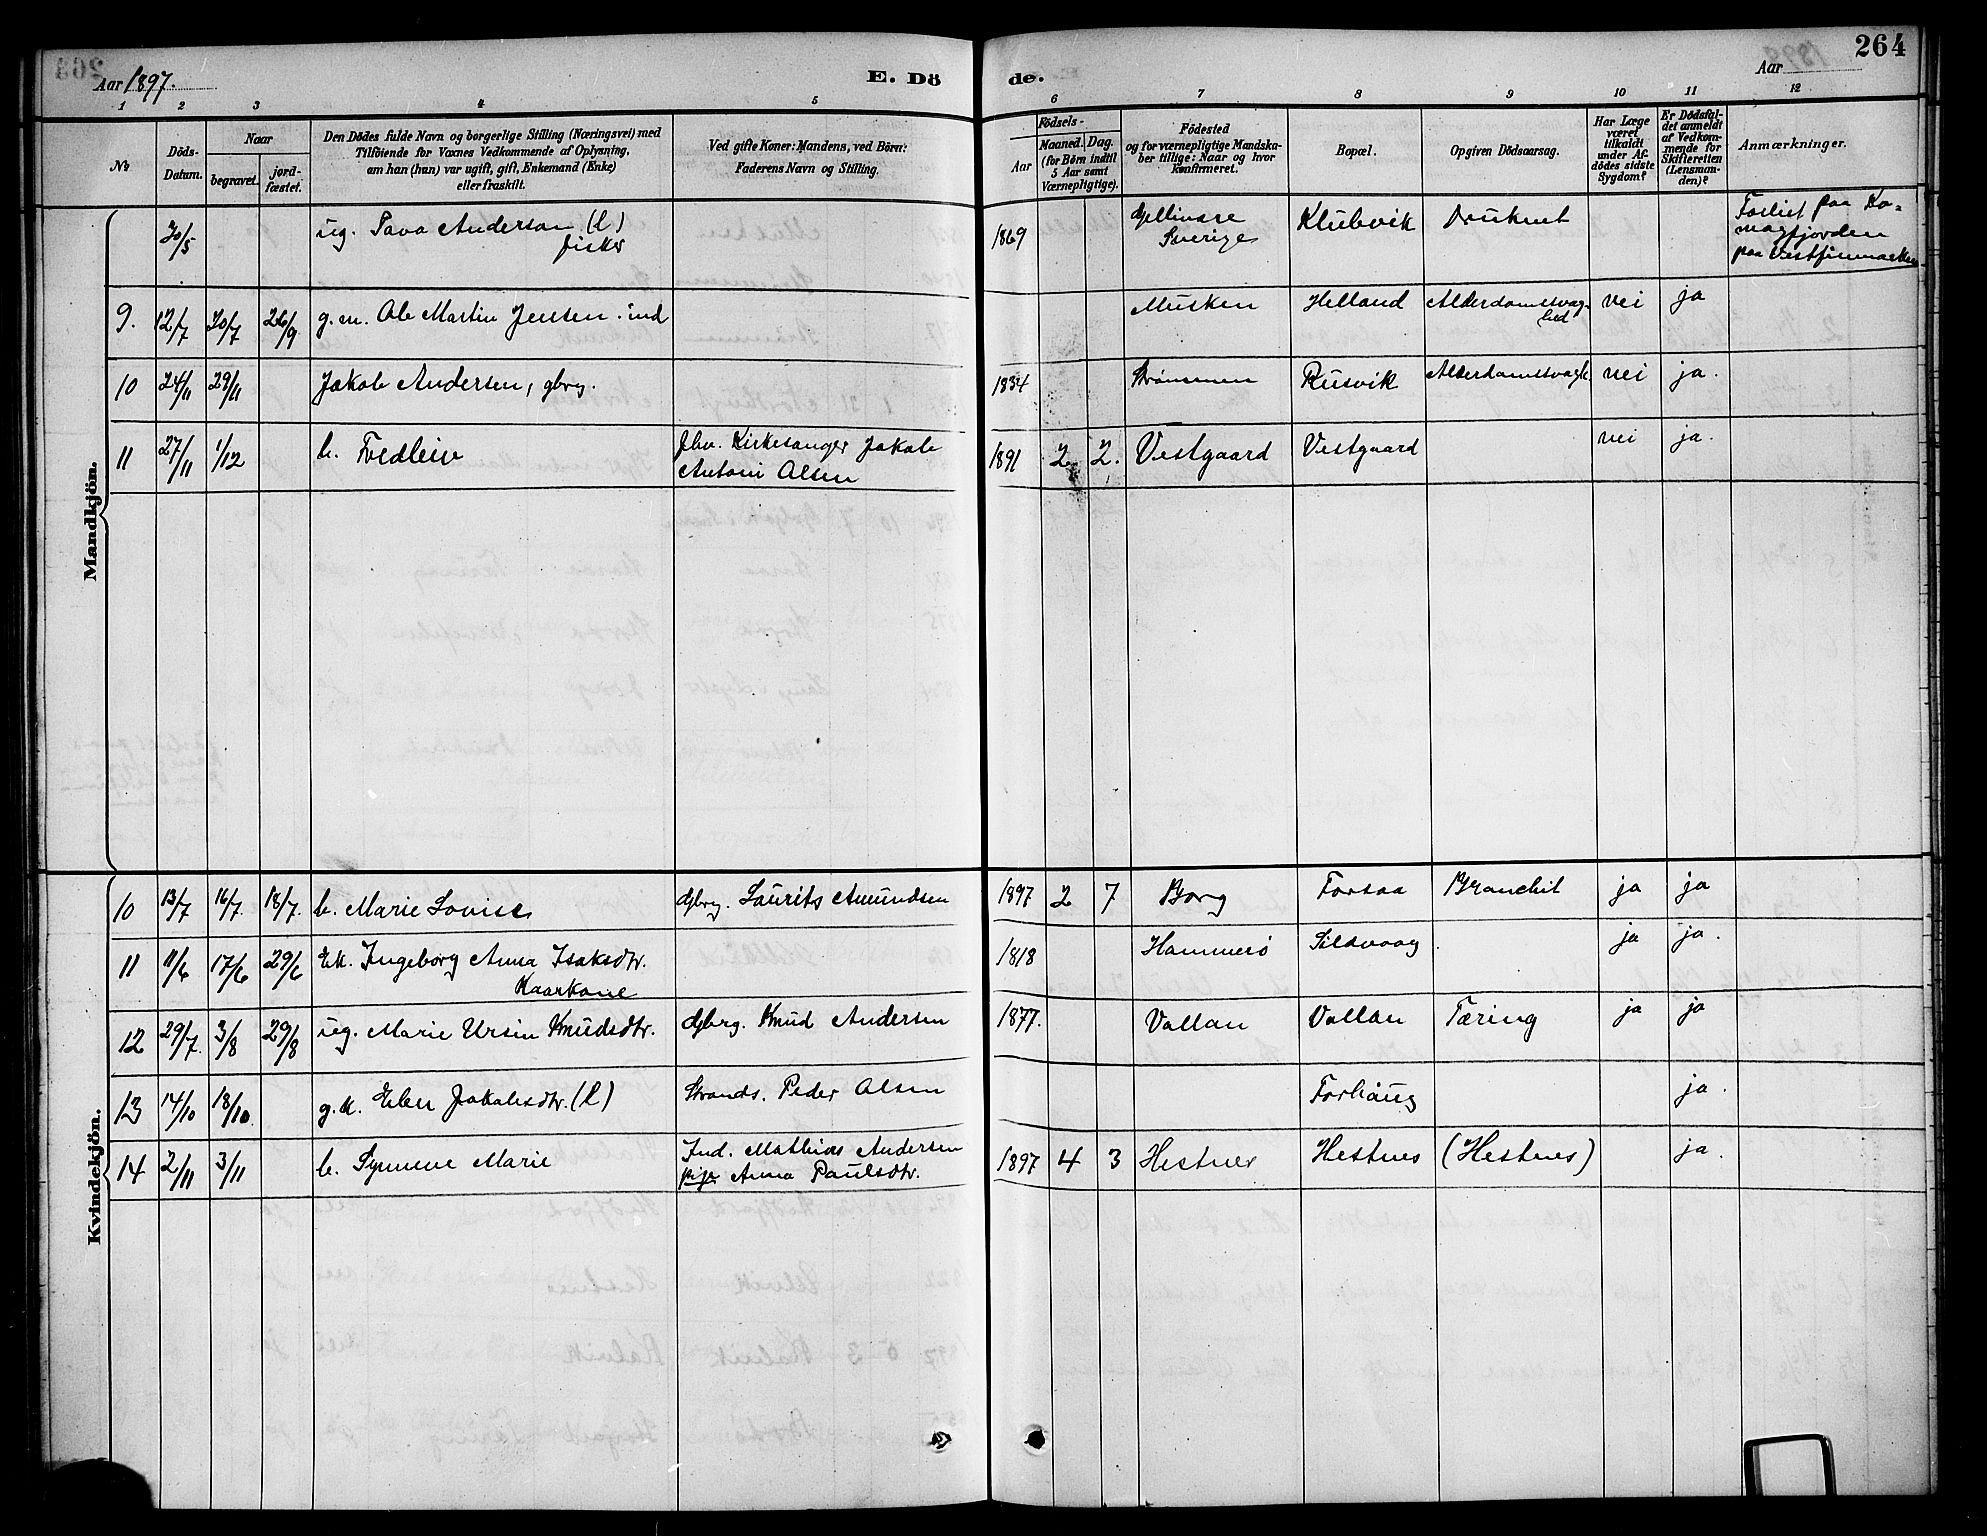 264
Aar 1897.
E. Dö
de.
Aar
1 2 3 4 5 6 7 8 9 10 11 12
No
Döds-
Datum.
Naar
begravet.
jord-
fæstet.
Den Dödes fulde Navn og borgerlige Stilling (Næringsvei) med
Tilföiende for Voxnes Vedkommende af Oplysning,
om han (hun) var ugift, gift, Enkemand (Enke)
eller fraskilt.
Ved gifte Koner: Mandens, ved Börn:
Faderens Navn og Stilling.
Födsels-
Aar
Maaned.
Dag.
(for Börn indtil
5 Aar samt
Værnepligtige).
Födested
og for værnepligtige Mandska-
ber tillige: Naar og hvor
konfirmeret.
Bopæl.
Opgiven Dödsaarsag.
Har Læge
været
tilkaldt
under Af-
dödes sidste
Sygdom?
Er Dödsfal-
det anmeldt
af Vedkom-
mende for
Skifteretten
(Lensman-
den)?
Anmærkninger.
Mandkjön.
30/5 ug. Pava Anderson (l) 1869 Gjellivare Klubvik Druknet Forlist paa Ko-
fisker Sverige magfjorden
paa Vestfinmarken
9. 12/7 30/7 26/9 g.m. Ole Martin Jensen ind Musken Helland Alderdomssvag- nei ja
hed
10 24/11 29/11 Jakob Andersen, gbrg. 1834 Strømmen Rusvik Alderdomssvagh. nei ja.
11 27/11 1/12 b. Fredleiv Kirkesanger Jakob 1891 2 2. Vestgaard Vestgaard nei ja.
Antoni Olsen
Kvindekjön.
10 13/7 16/7. 18/7. b. Marie Lovise Gbrg. Laurits Amundsen 1897 2 7 Borg Forsaa Bronchit ja ja
11 11/6 17/6 29/6 Ek. Ingeborg Anna Isaksdtr. 1818 Hammerø Sildvaag ja ja.
Kaarkone
12 29/7. 3/8 29/8 ug. Marie Ursin Knudsdtr. Gbrg. Knud Andersen 1877. Vallan Vallan Tæring ja ja
13 14/10 18/10. g.k. Elen Jakobsdtr. (l) Strands. Peder Olsen Forhaug ja.
14 2/11 3/11 b. Synneve Marie Ind. Mathias Andersen 1897 4 3 Hestnes Hestnes (Hestnes) ja.
pige Anna Paulsdtr.